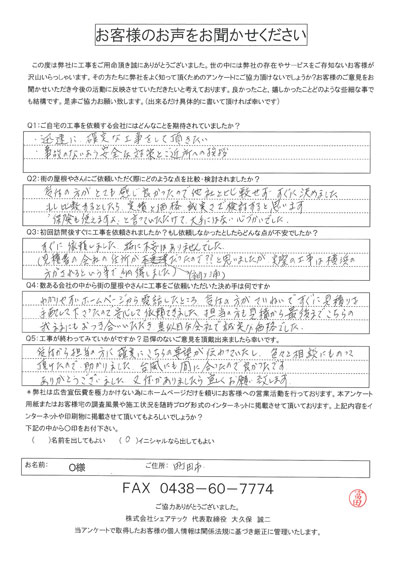 お客様のお声をお聞かせください
この度は弊社に工事をご用命頂き誠にありがとうございました。世の中には弊社の存在やサービスをご存知ないお客様が
沢山いらっしゃいます。その方たちに弊社をよく知って頂くためのアンケートにご協力頂けないでしょうか?お客様のご意見をお
聞かせいただき今後の活動に反映させていただきたいと考えております。良かったこと、嬉しかったことどのような些細な事で
も結構です。是非ご協力お願い致します。(出来るだけ具体的に書いて頂ければ幸いです)
Q1:ご自宅の工事を依頼する会社にはどんなことを期待されていましたか?
・迅速に、確実な工事をして頂きたい
・事故のないよう安全な対策とご近所への挨拶
Q2:街の屋根やさんにご依頼いただく際にどのような点を比較・検討されましたか?
受付の方がとても感じ良かったので他社と比較せず すぐに決めました
もし比較するとしたら、実績と価格 誠実さで検討すると思います
保険も使えますよ、と言っていただけて、大変に心強かったでした。
Q3:初回訪問後すぐに工事を依頼されましたか?もし依頼しなかったとしたらどんな点が不安でしたか?
すぐに依頼しました。特に不安はありませんでした。
Q4:数ある会社の中から街の屋根やさんにご依頼いただいた決め手は何ですか
わかりやすいホームページから電話したところ 受付の方がていねいですぐに見積りを
Q5:工事が終わってみていかがですか?忌憚のないご意見を頂戴出来ましたら幸いです。
受付から担当の方に確実にこちらの要望が伝わっていたし、色々と相談にものって
頂けたので、助かりました。台風にも間に合ったので良かったです
ありがとうございました 又何かありましたら宜しくお願い致します
*弊社は広告宣伝費を極力かけない為にホームページだけを頼りにお客様への営業活動を行っております。本アンケート
用紙またはお客様宅の調査風景や施工状況を随時ブログ形式のインターネットに掲載させて頂いております。上記内容をイ
ンターネットや印刷物に掲載させて頂いてもよろしいでしょうか?
下記の中から〇印をお付下さい。
( )名前を出してもよい ( O )イニシャルなら出してもよい
お名前: O様 ご住所: 町田市
FAX 0438-60-7774
ご協力ありがとうございました。
株式会社シェアテック 代表取締役 大久保 誠二
当アンケートで取得したお客様の個人情報は関係法規に基づき厳正に管理いたします。